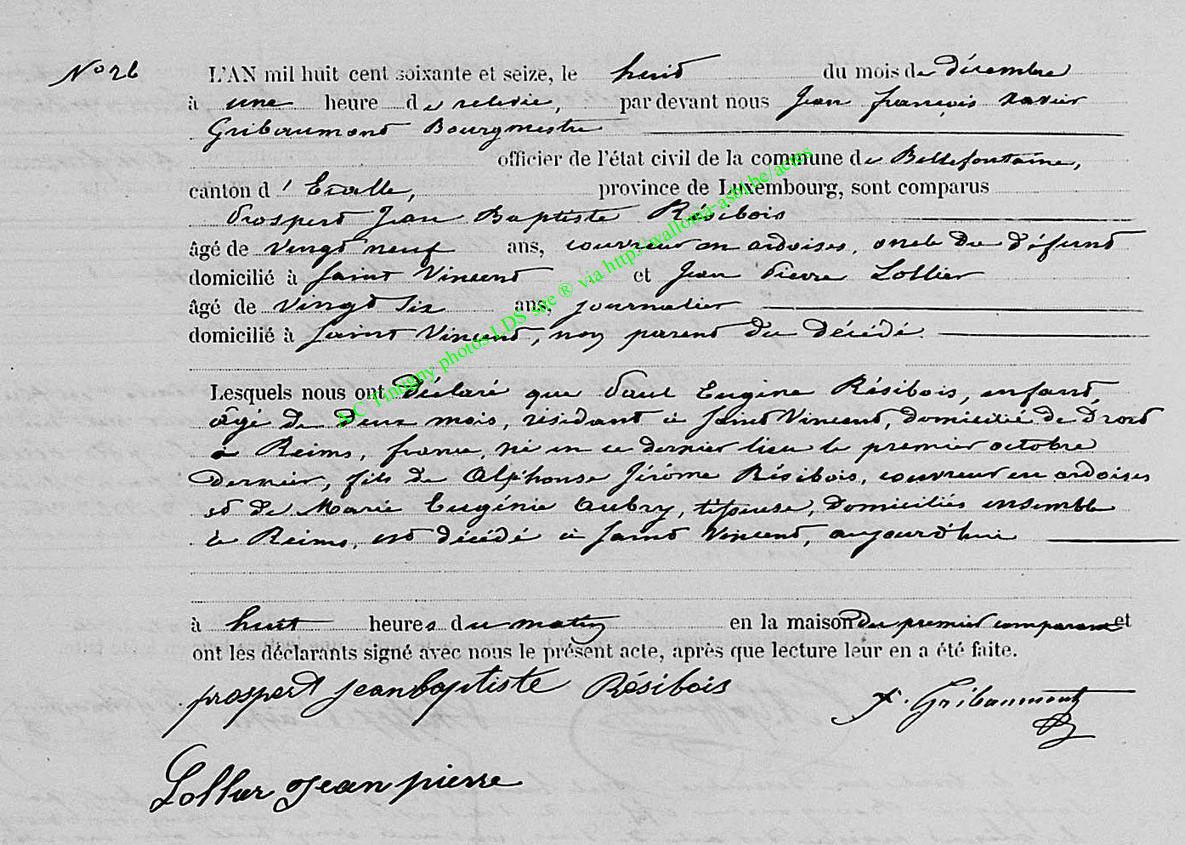 N° 26
L'AN mil huit cent soixante et seize, le huit du mois de décembre
à une heure de relevée, par devant nous Jean françois xavier
Gribaumont Bourgmestre
officier de l'état civil de la commune de Bellefontaine,
canton d'Etalle, province de Luxembourg, sont comparus
Prospert Jean Baptiste Résibois
âgé de vingt neuf ans, couvreur en ardoises, oncle du défunt
domicilié à Saint Vincent et Jean Pierre Lollier
âgé de vingt six ans, journalier
domicilié à Saint Vincent, non parent du décédé.
Lesquels nous ont déclaré que Paul Eugène Résibois, enfant,
âgé de deux mois, résidant à Saint Vincent, domicilié de droit
à Reims, france, né en ce dernier lieu le premier octobre
dernier, fils de Alphonse Jérôme Résibois, couvreur en ardoises
et de Marie Eugénie Aubry, tisseuse, domiciliés ensemble
à Reims, est décédé à Saint Vincent, aujourd'hui
à huit heures du matin en la maison du premier comparant et
ont les déclarants signé avec nous le présent acte, après que lecture leur en a été faite.
prospert jeanbaptiste Résibois
x. Gribaumont
Lollier Jean pierre
A.C Tintigny photos LDS site ® via http://wallonia-asbl.be/actes